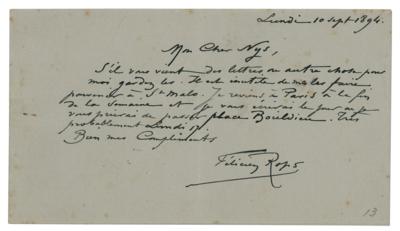 Lundi 10 Sept 1894.
Mon Cher Nys,
S'il vous vient des lettres ou autre chose pour
moi gardez les. Il est inutile de me les faire
parvenir à St Malo. Je reviens à Paris à la fin
de la semaine et je vous écrirai le jour où je
vous prierai de passer place Boïeldieu. Très
probablement Lundi 17.
Bien mes Compliments
Félicien Rops
13